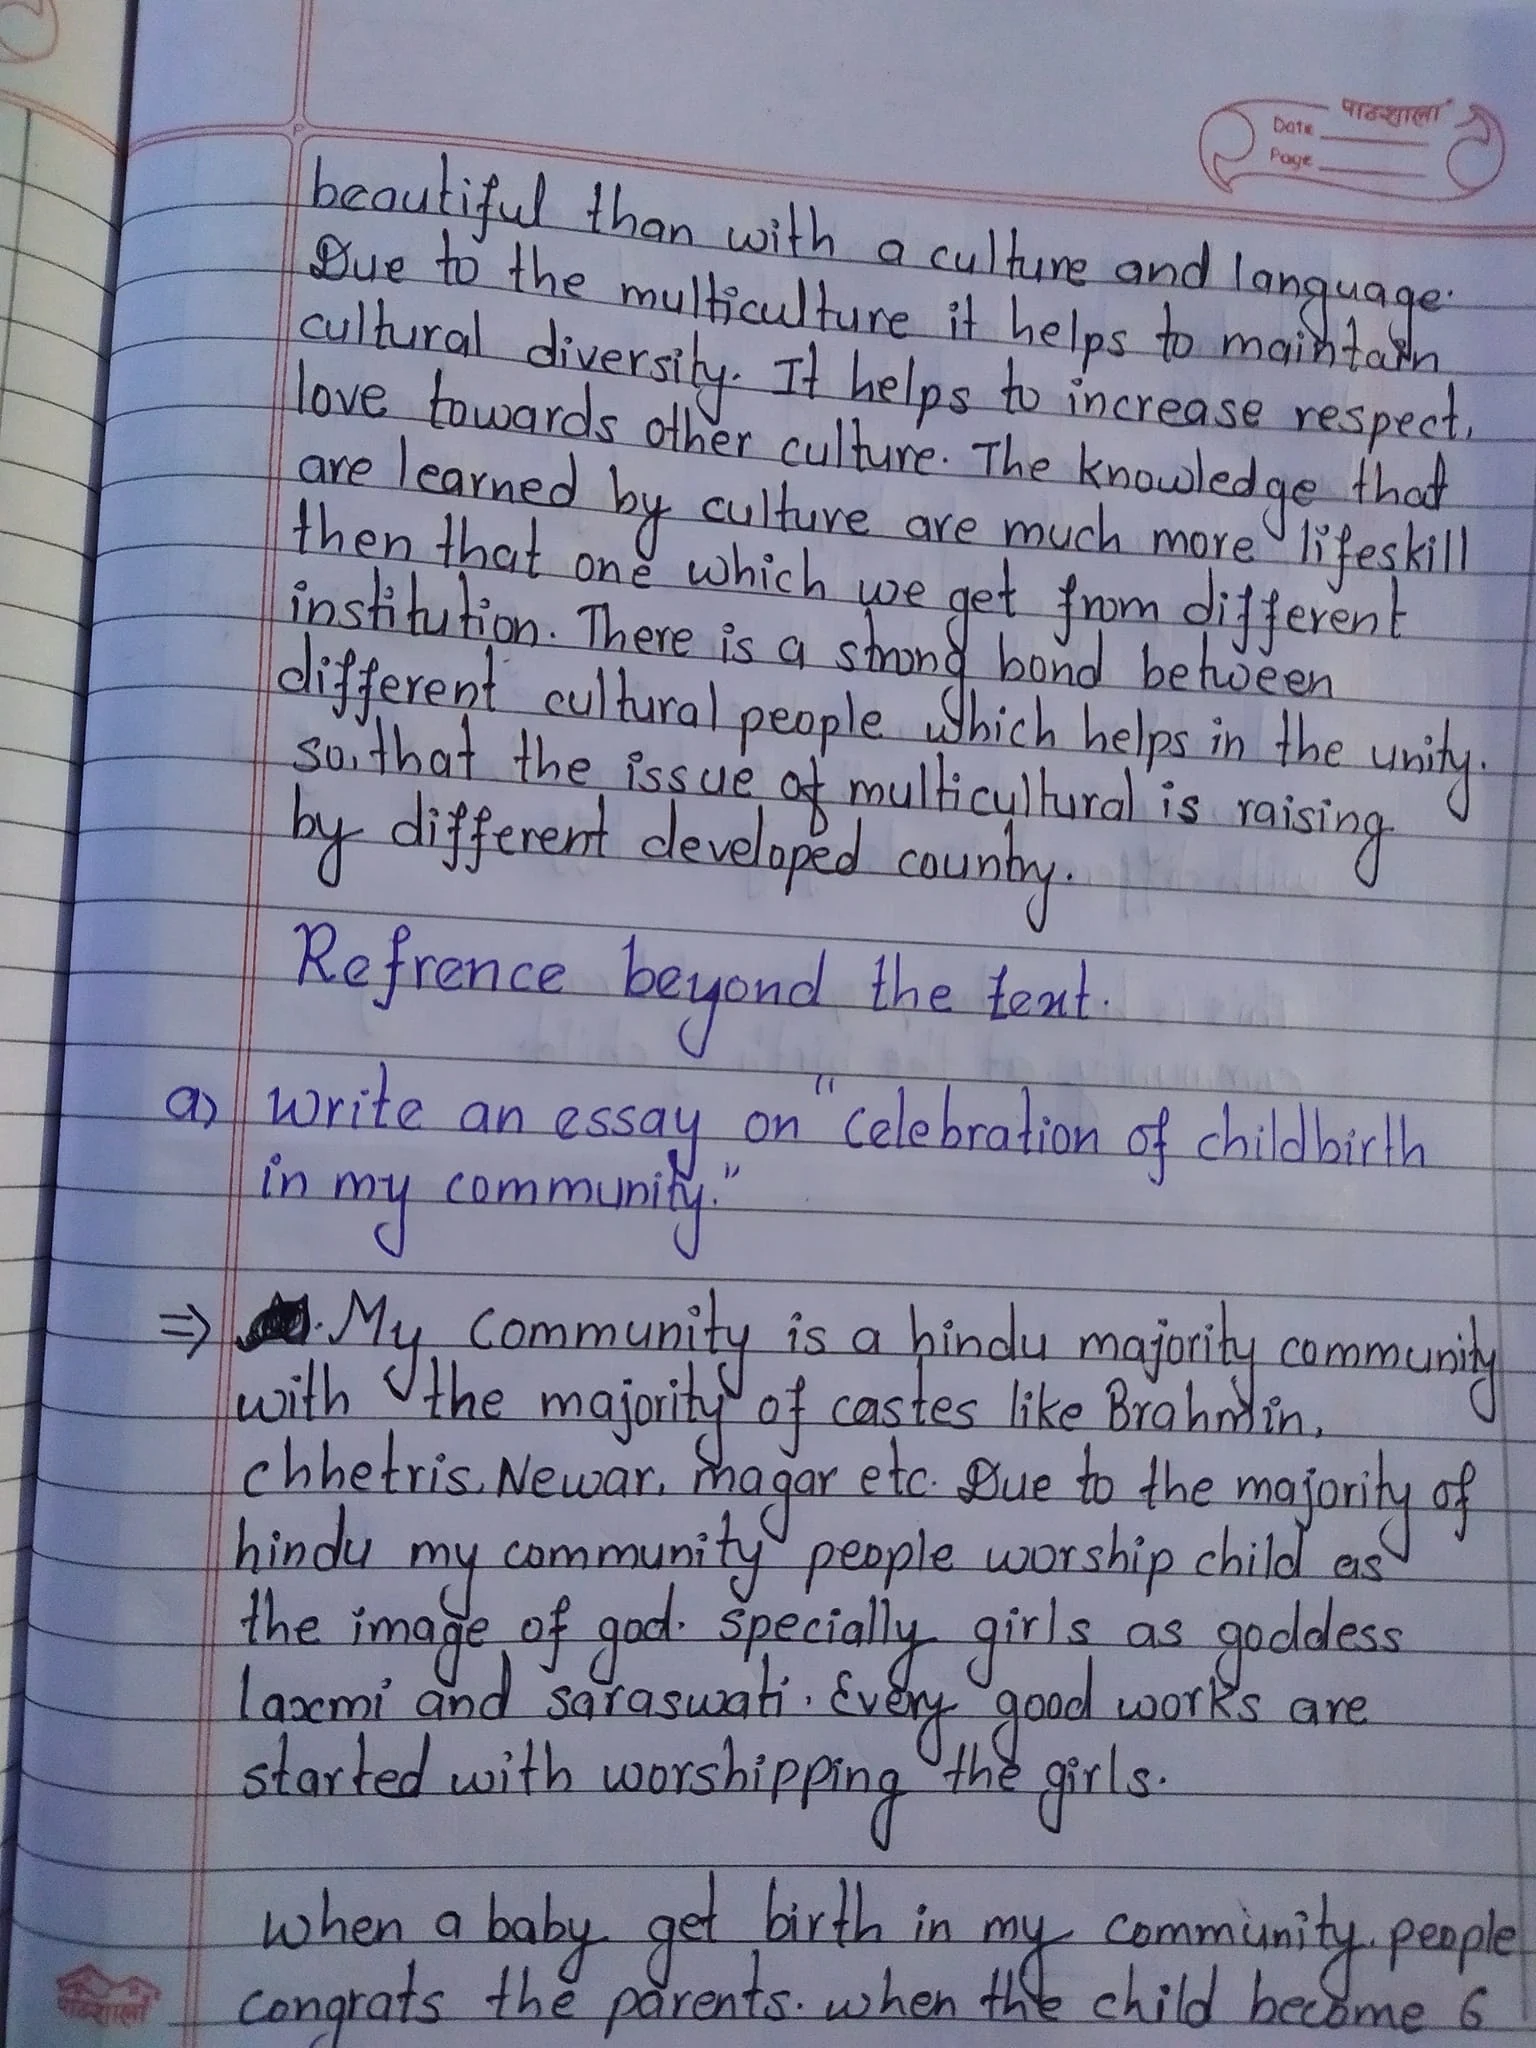 पाठशाला
Date
Page
beautiful than with a culture and language.
Due to the multiculture it helps to maintain
cultural diversity. It helps to increase respect,
love towards other culture. The knowledge that
are learned by culture are much more lifeskill
then that one which we get from different
institution. There is a strong bond between
different cultural people which helps in the unity.
so, that the issue of multicultural is raising
by different developed country.
Refrence beyond the text.
a) write an essay on "celebration of childbirth
in my community."
⇒ My community is a hindu majority community
with the majority of castes like Brahmin,
chhetris, Newar, magar etc. Due to the majority of
hindu my community people worship child as
the image of god. specially girls as goddess
laxmi and saraswati. Every good works are
started with worshipping the girls.
when a baby get birth in my community, people
congrats the parents. when the child become 6
पाठशाला